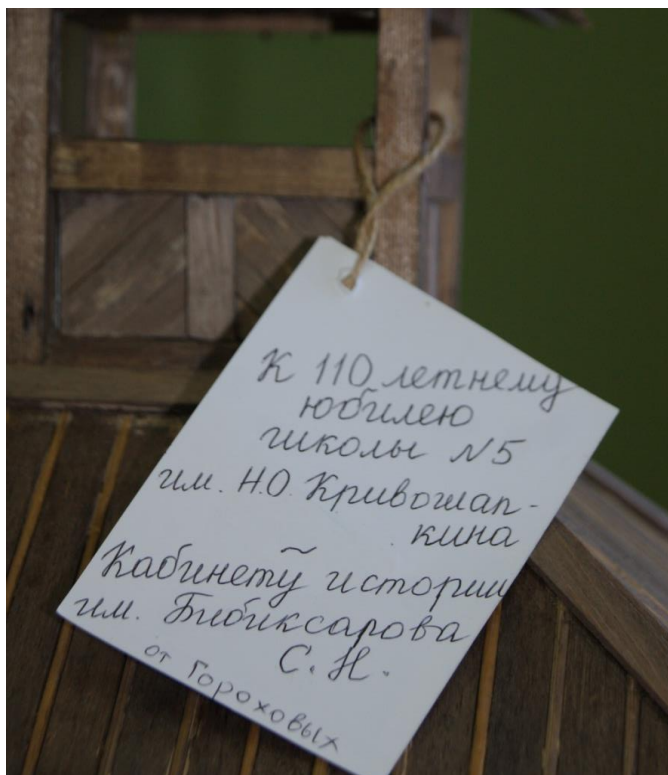 К 110 летнему
юбилею
школы №5
им. Н.О. Кривошап-
кина
Кабинету истории
им. Бибиксарова
С.Н.
от Гороховых